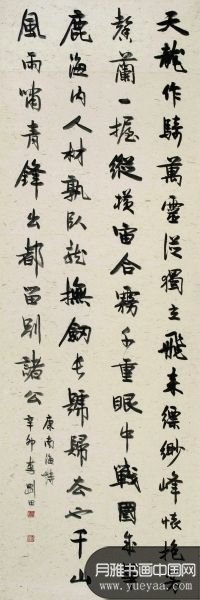 天龍作騎萬靈從獨立飛來縹緲峰懷抱芳
馨蘭一握縱橫宙合霧千重眼中戰國成爭
鹿海內人材孰臥龍撫劍長號歸去也千山
風雨嘯青鋒出都留別諸公
康南海詩
辛卯春
月雅书画中国网
www.yueyaa.com